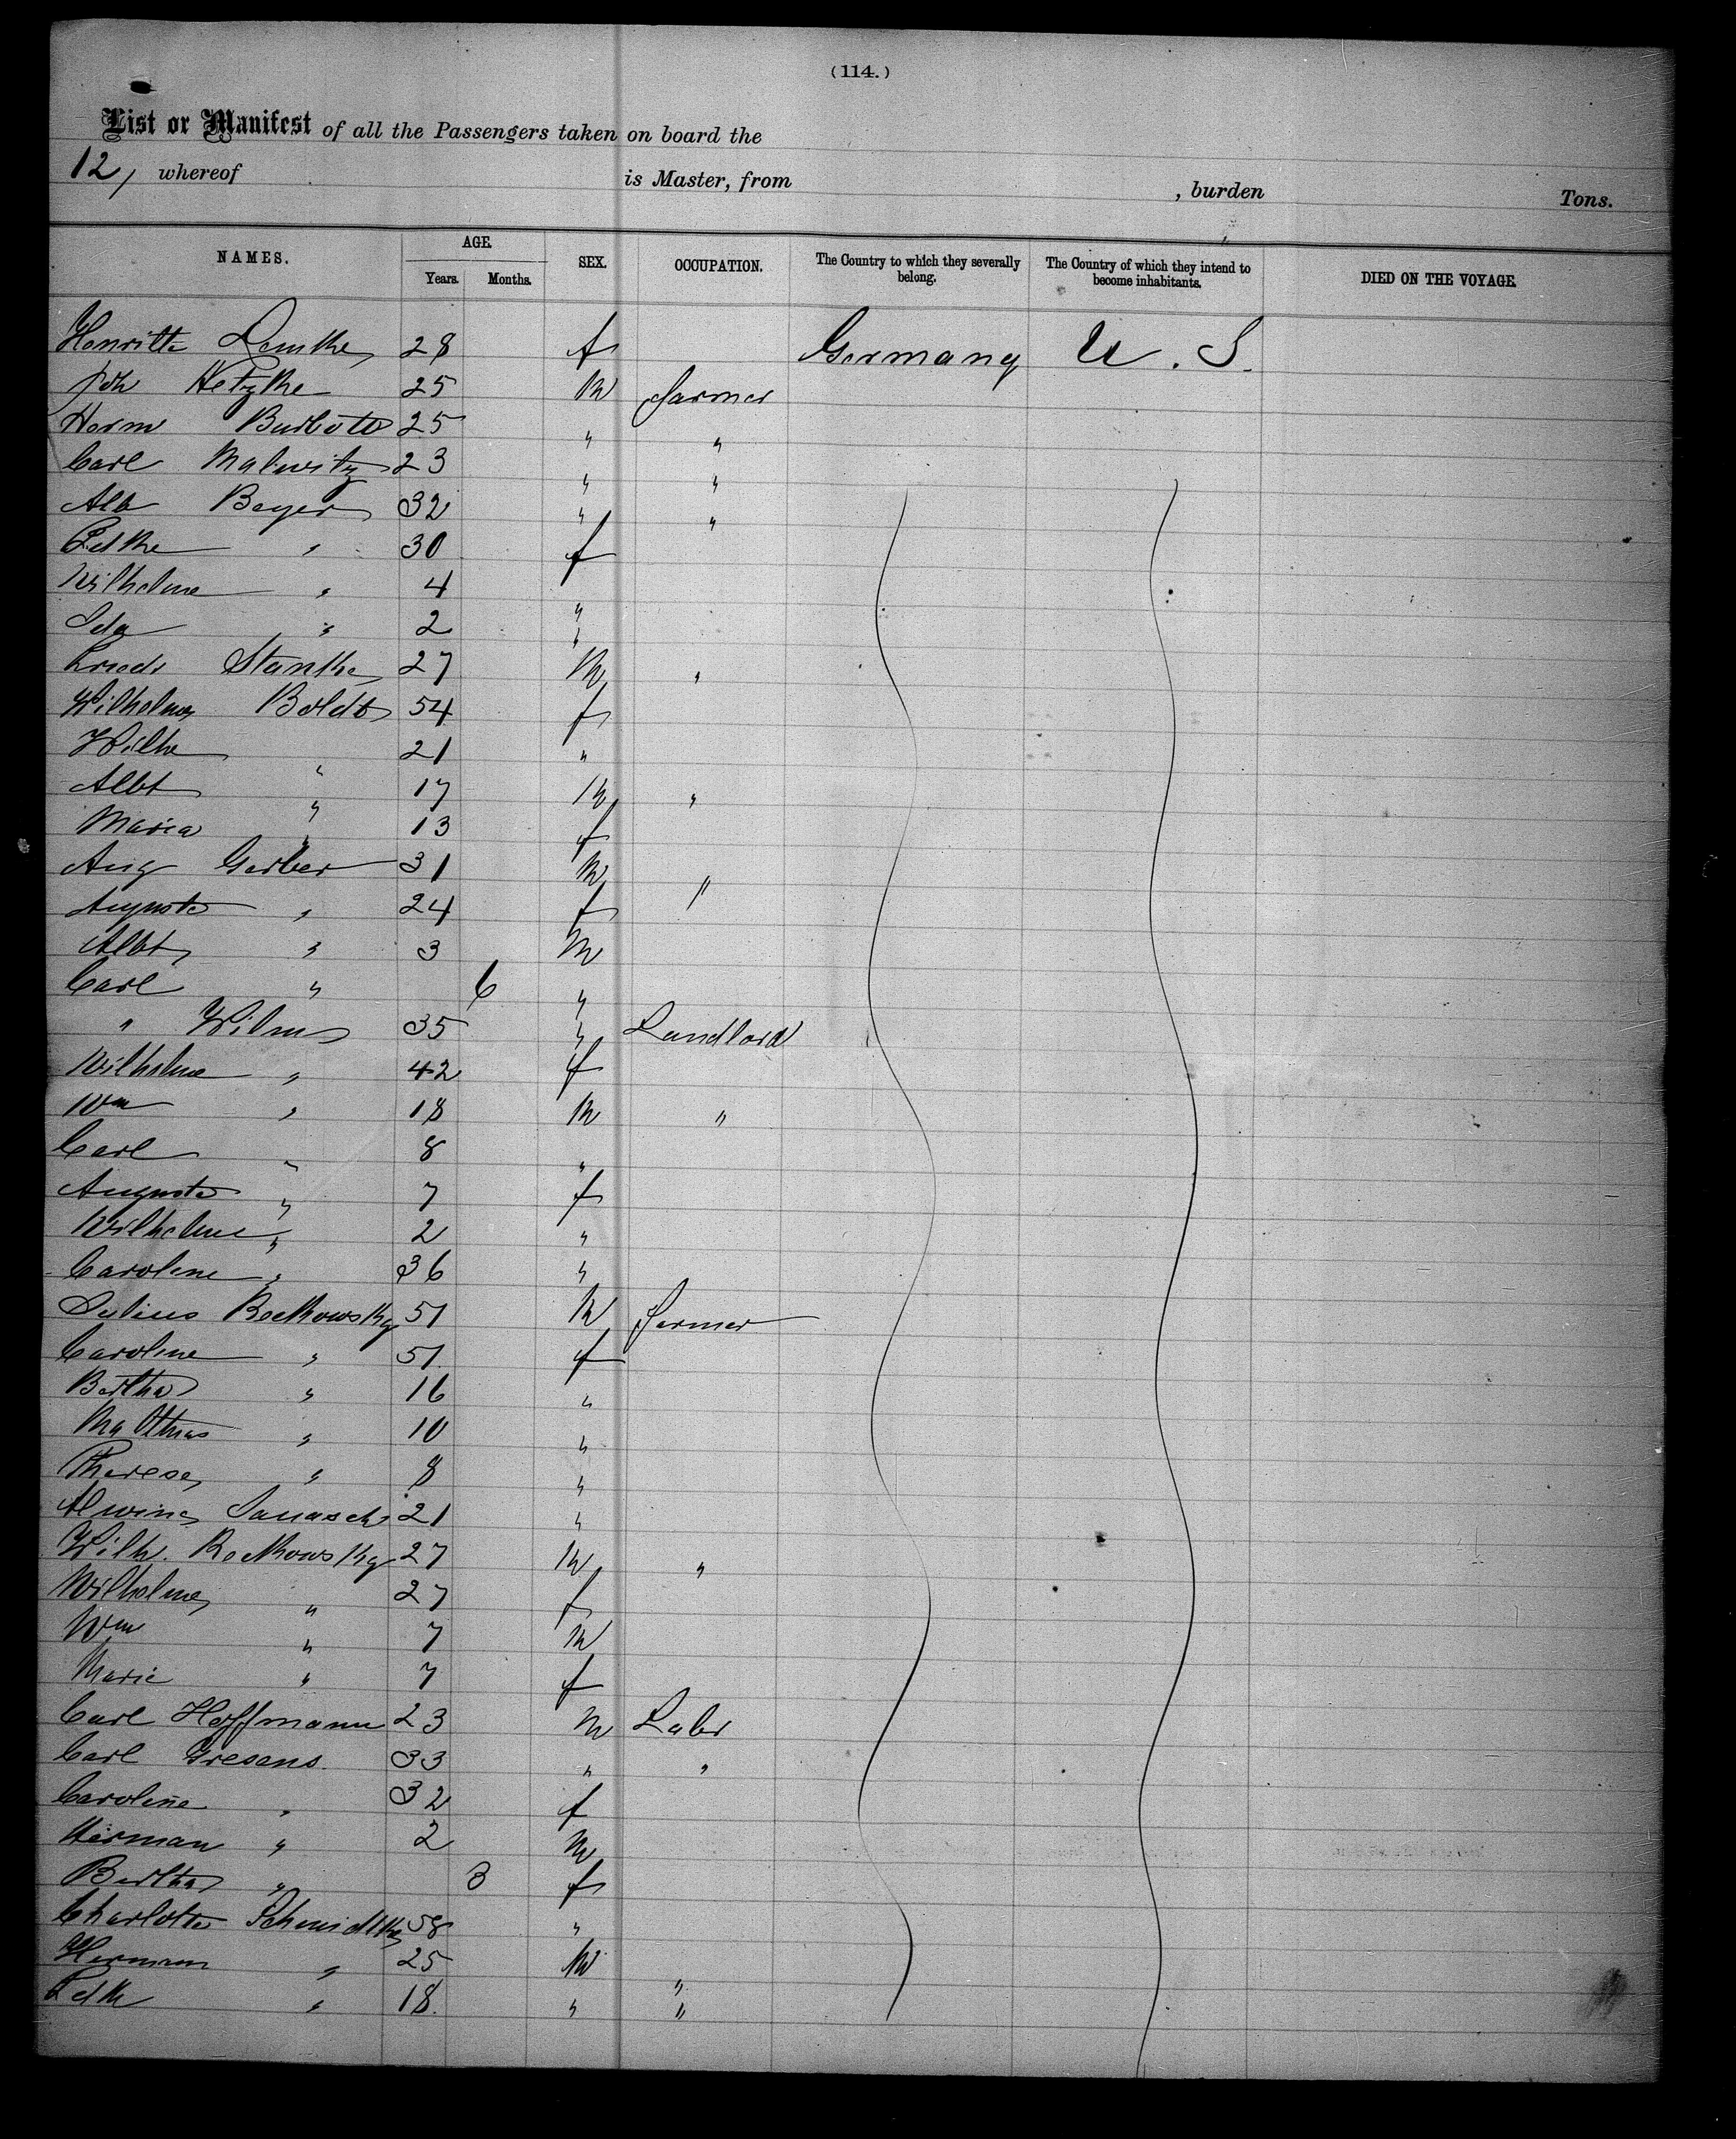 (114.)
List or Manifest of all the Passengers taken on board the
12, whereof is Master, from , burden Tons.
NAMES. AGE. SEX. OCCUPATION. The Country to which they severally belong. The Country of which they intend to become inhabitants. DIED ON THE VOYAGE.
Years. Months.
Henritte Lemke 28 f Germany U. S.
Joh Hetzke 25 m farmer
Herm 25 " "
Carl Malwitz 23 " "
Alb Beyer 32 " "
" 30 f
Wilhelme " 4 "
Ida " 2 "
Friedr Stanke 27 m "
Wilhelmg Boldt 54 f
Wilhe " 21 "
Albt " 17 m "
Maria " 13 f
Aug Gerber 31 m "
Auguste " 24 f
Albt " 3 m
Carl " 6 "
" Wilms 35 " Landlord
Wilhelme " 42 f
Wm " 18 m "
Carl " 8 "
Auguste " 7 f
Wilhelme " 2 "
Caroline " 36 "
Julius Reckowsky 51 m farmer
Caroline " 51 f
Bertha " 16 "
" 10 "
Therese " 8 "
Alwine 21 "
Wilh. Reckowsky 27 m "
Wilhelme " 27 f
Wm " 7 m
Marie " 7 f
Carl Hoffmann 23 m Labr
Carl Gresens 33 " "
Caroline " 32 f
Herman " 2 m
Bertha " 3 f
Charlotte Schmidtke 58 "
Hermann " 25 m "
" 18 " "